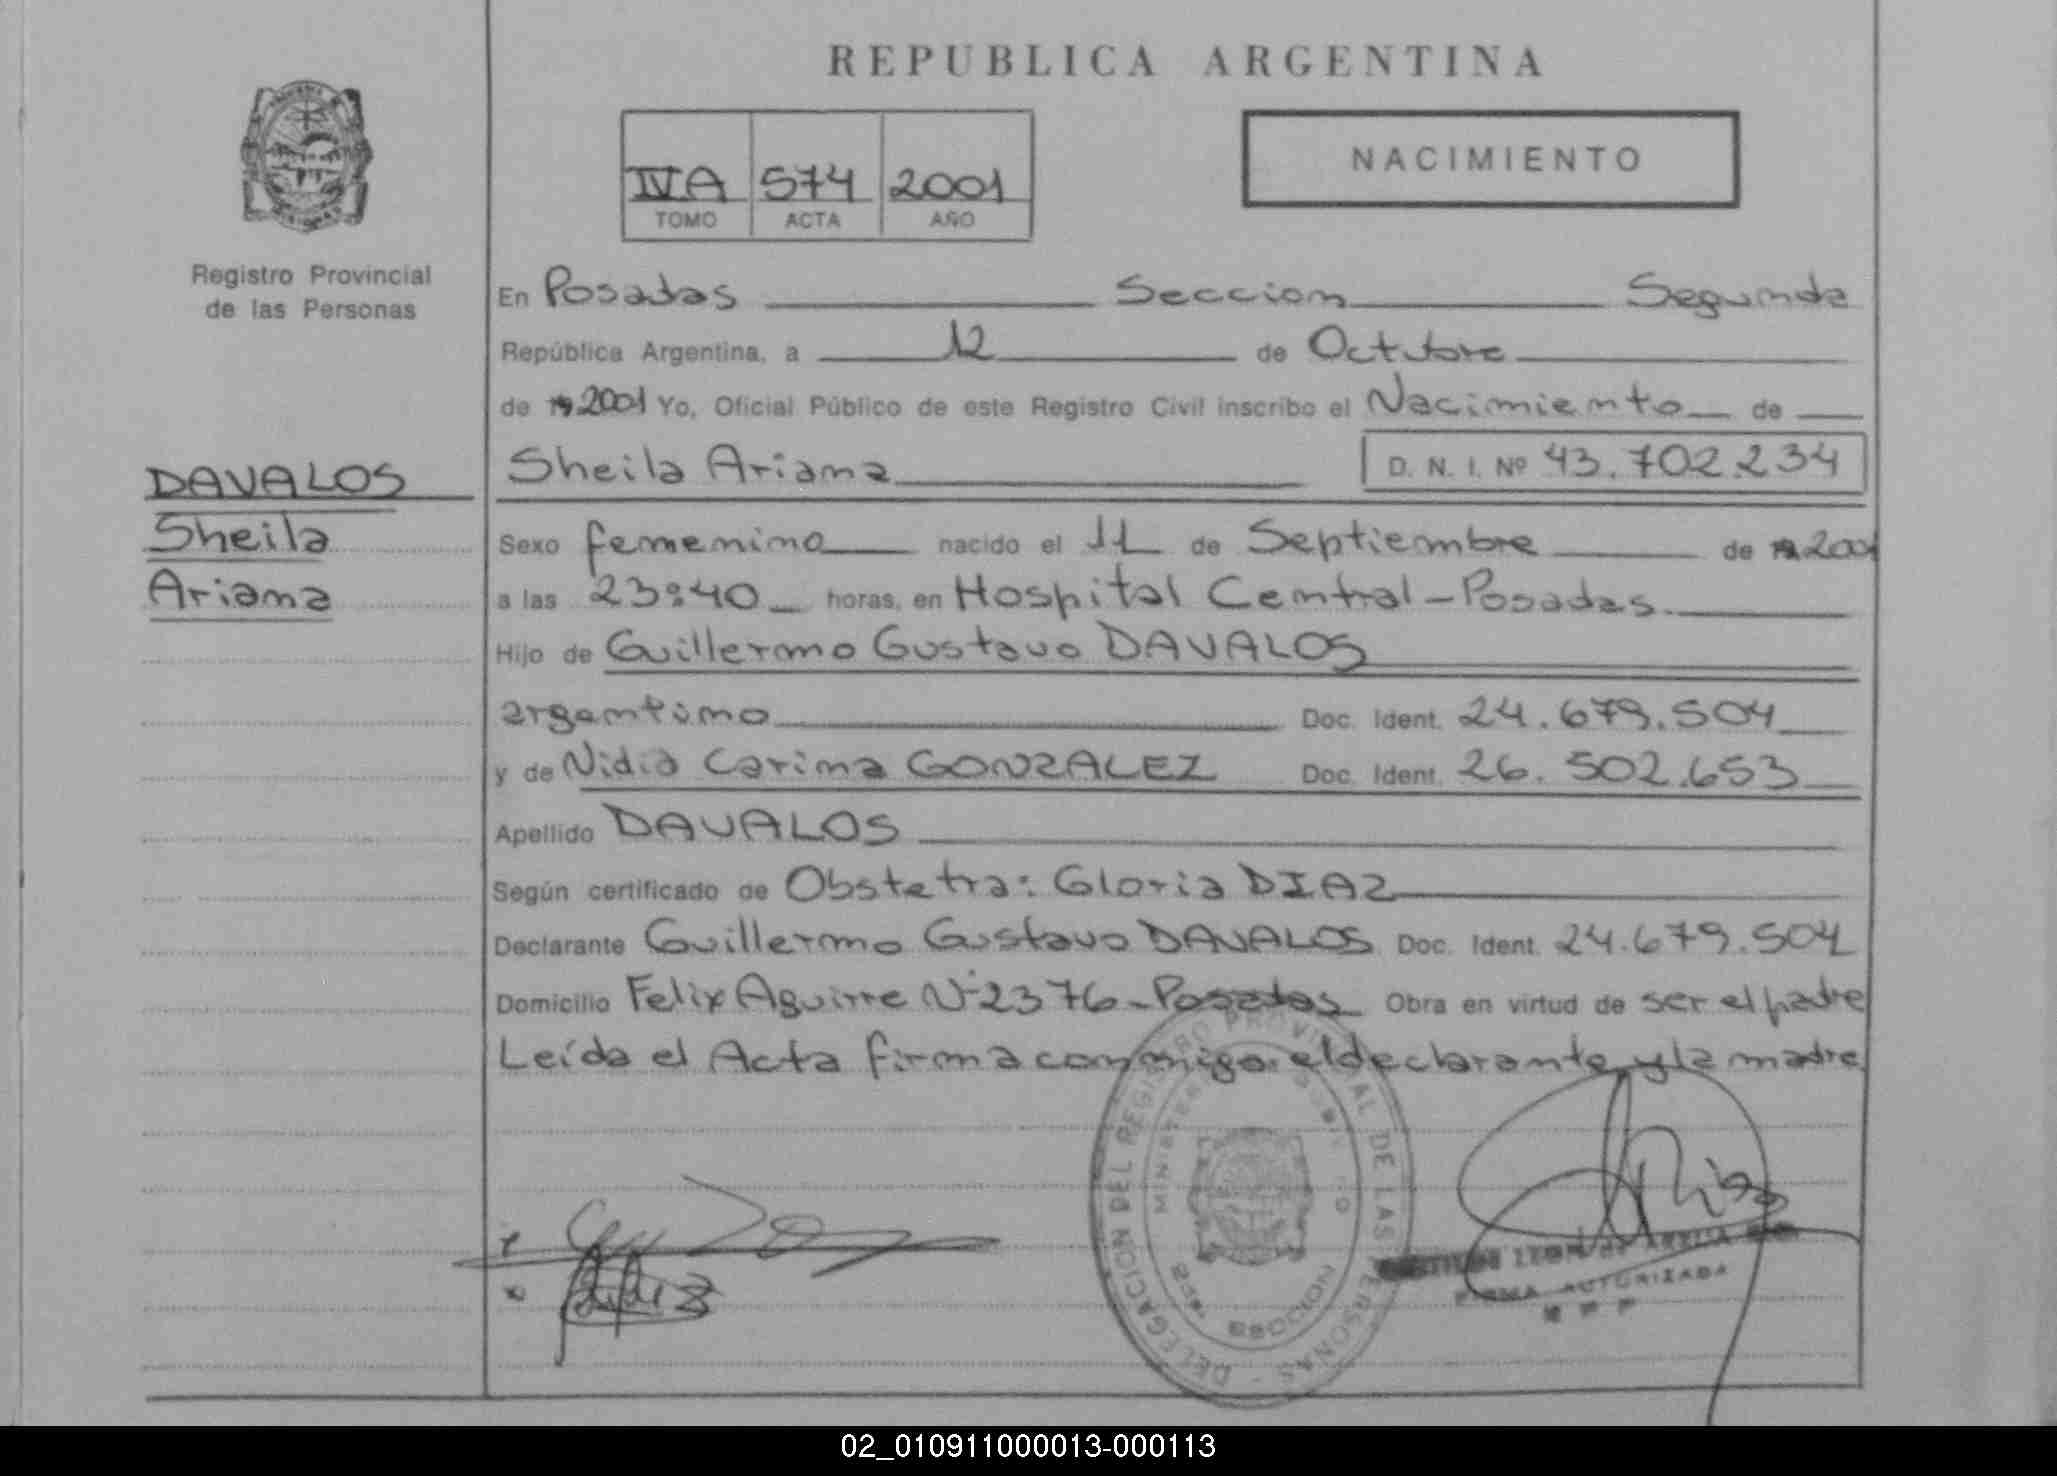 REPUBLICA ARGENTINA
IVA 574 2001
TOMO ACTA AÑO
NACIMIENTO
Registro Provincial
de las Personas
DAVALOS
Sheila
Ariana
En Posadas Seccion Segunda
República Argentina, a 12 de Octubre
de 192001 Yo, Oficial Público de este Registro Civil inscribo el Nacimiento de
Sheila Ariana D. N. I. Nº 43.702.234
Sexo femenino nacido el 11 de Septiembre de 192001
a las 23:40 horas, en Hospital Central - Posadas
Hijo de Guillermo Gustavo DAVALOS
argentino Doc. Ident. 24.679.504
y de Nidia Carina GONZALEZ Doc. Ident. 26.502.653
Apellido DAVALOS
Según certificado de Obstetra: Gloria DIAZ
Declarante Guillermo Gustavo DAVALOS Doc. Ident. 24.679.504
Domicilio Felix Aguirre Nº 2376 - Posadas Obra en virtud de ser el padre
Leída el Acta firma conmigo el declarante y la madre
DELEGACION DEL REGISTRO PROVINCIAL DE LAS PERSONAS
MINISTERIO DE GOBIERNO
MISIONES
LEON de
FIRMA AUTORIZADA
02_010911000013-000113